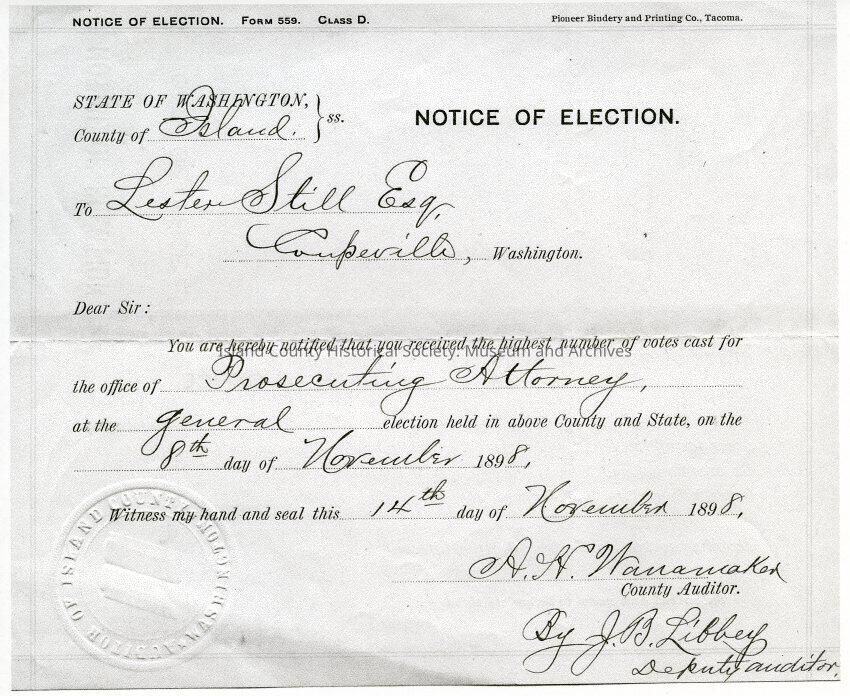 NOTICE OF ELECTION. FORM 559. CLASS D.
Pioneer Bindery and Printing Co., Tacoma.
STATE OF WASHINGTON,
County of Island. } ss.
NOTICE OF ELECTION.
To Lester Still Esq,
Coupeville, Washington.
Dear Sir:
You are hereby notified that you received the highest number of votes cast for
Island County Historical Society: Museum and Archives
the office of Prosecuting Attorney,
at the general election held in above County and State, on the
8th day of November 1898,
Witness my hand and seal this 14th day of November 1898,
A. H. Wanamaker
County Auditor.
By J. B. Libbey
Deputy auditor.
AUDITOR OF ISLAND COUNTY WASHINGTON